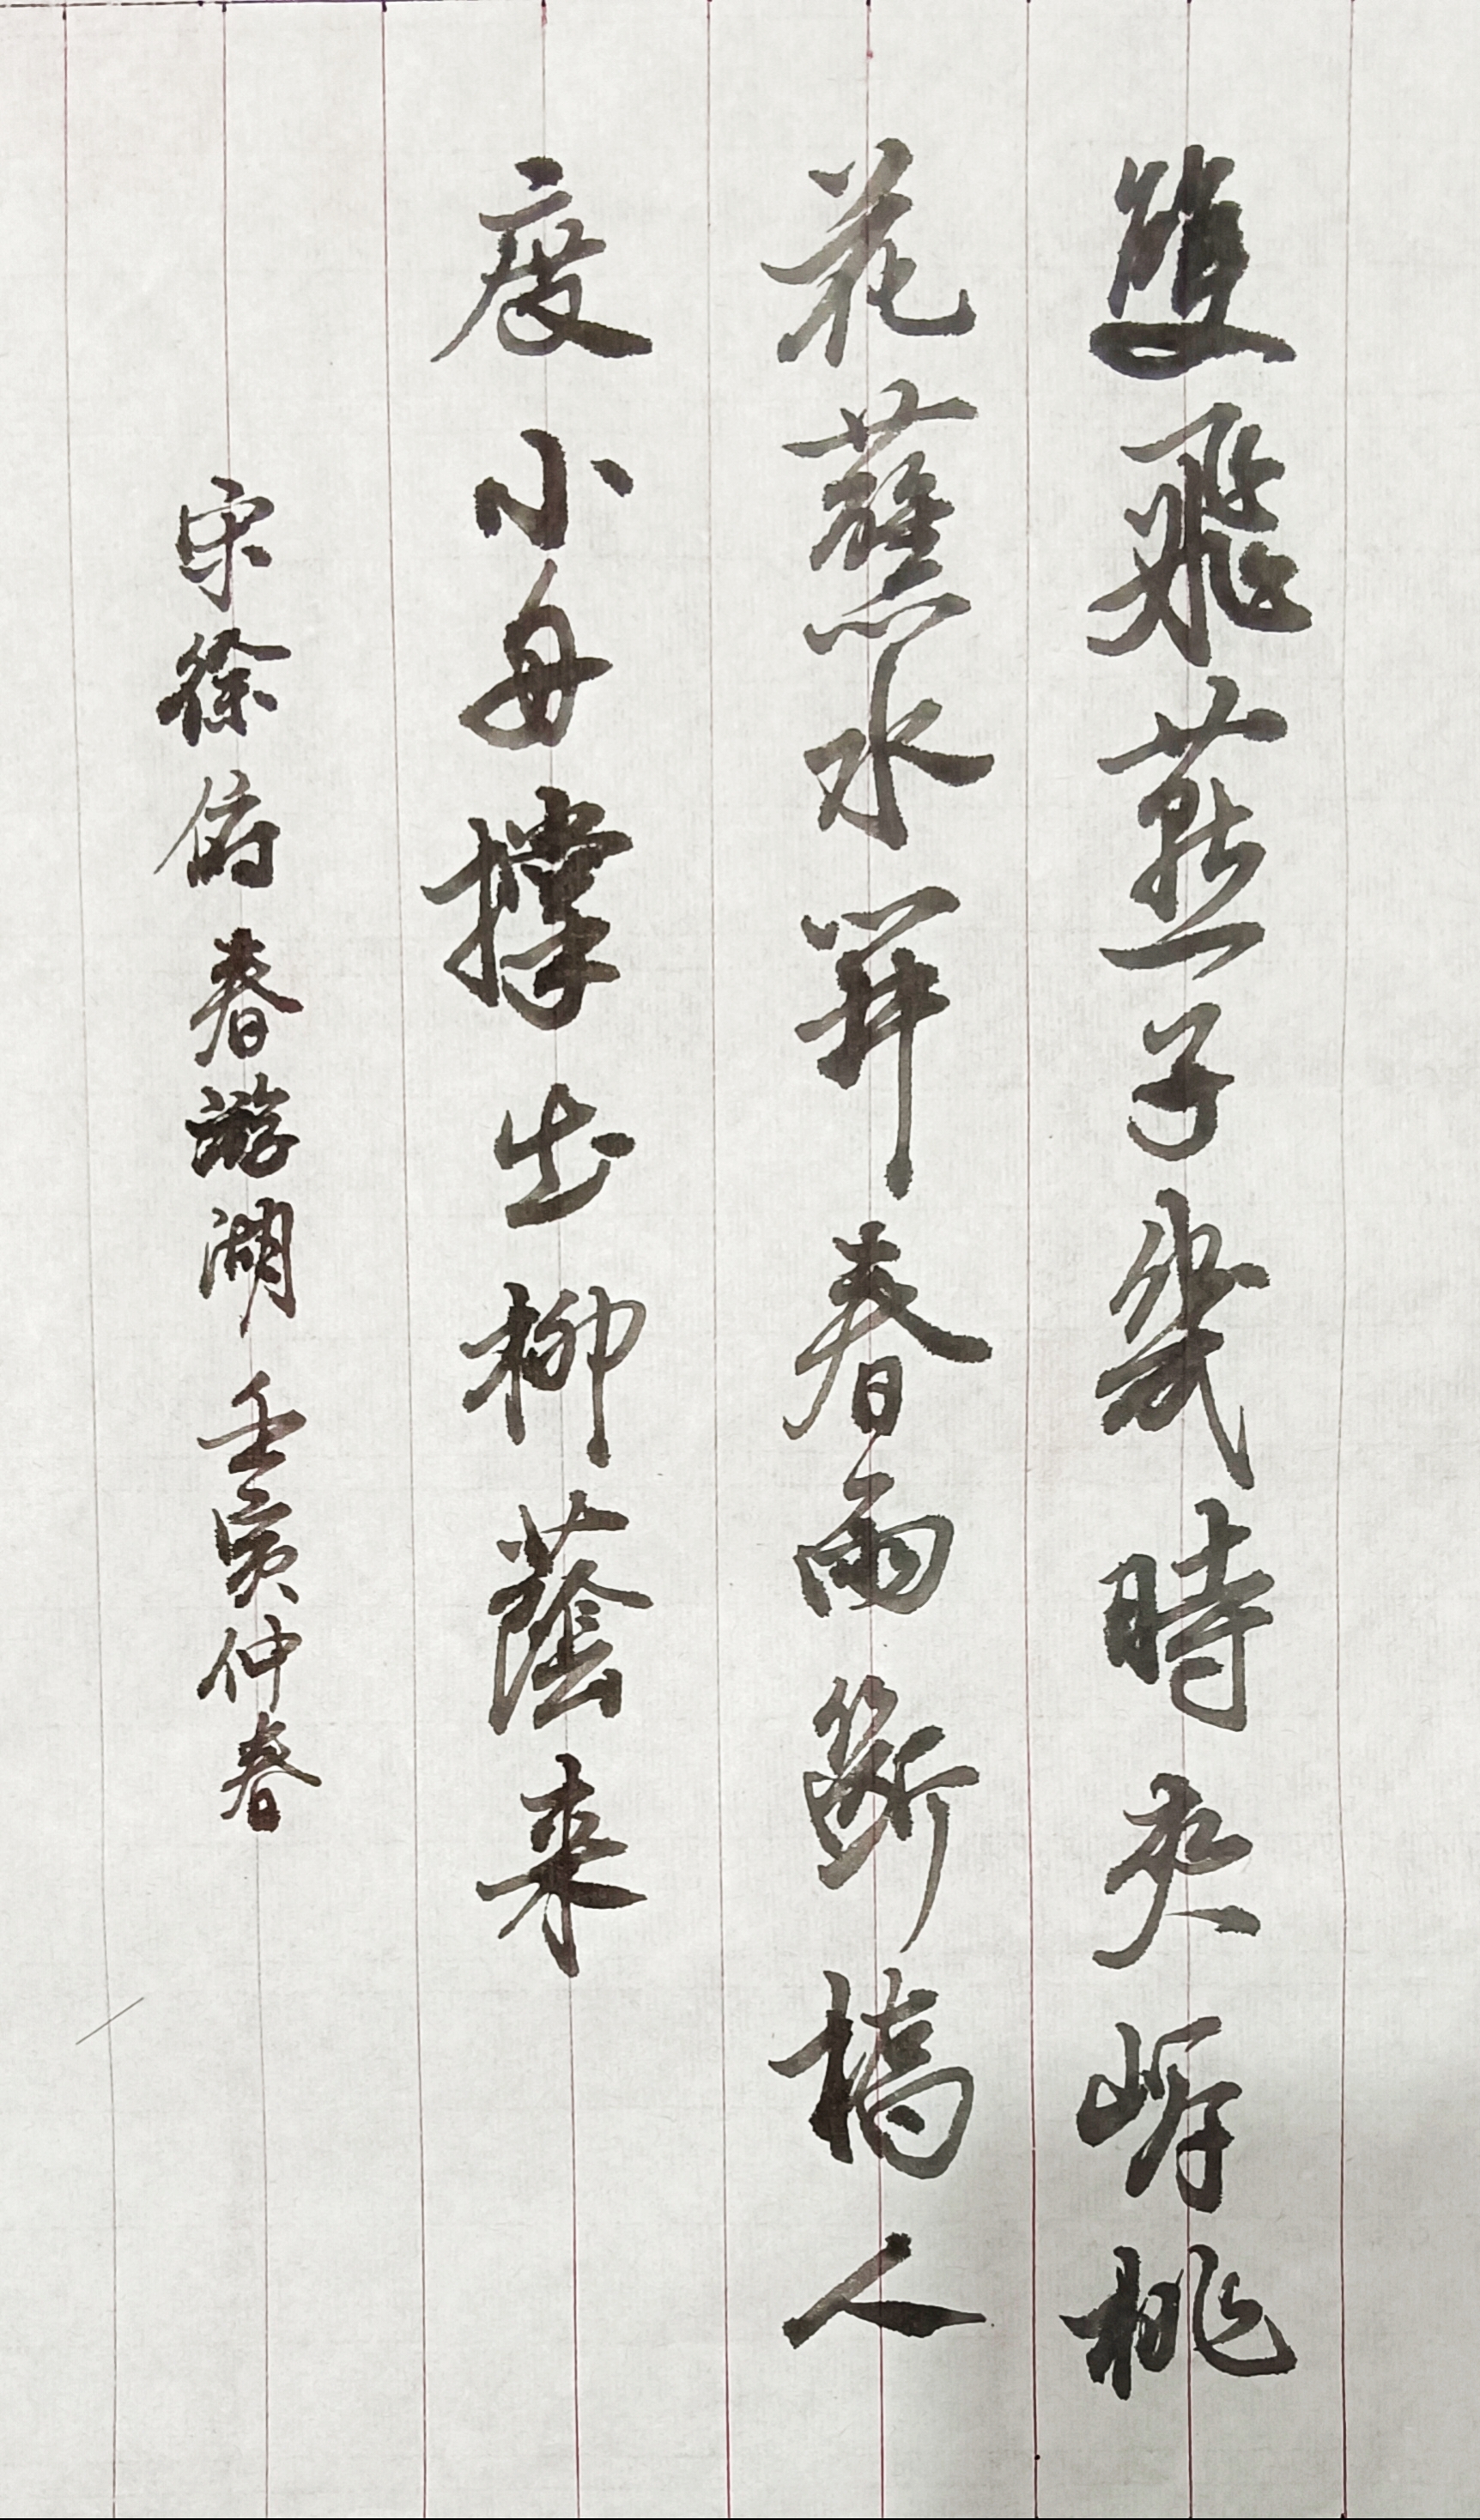 雙飛燕子幾時来夾岸桃
花蘸水開春雨斷橋人
度小舟撐出柳蔭来
宋徐俯春游湖 壬寅仲春